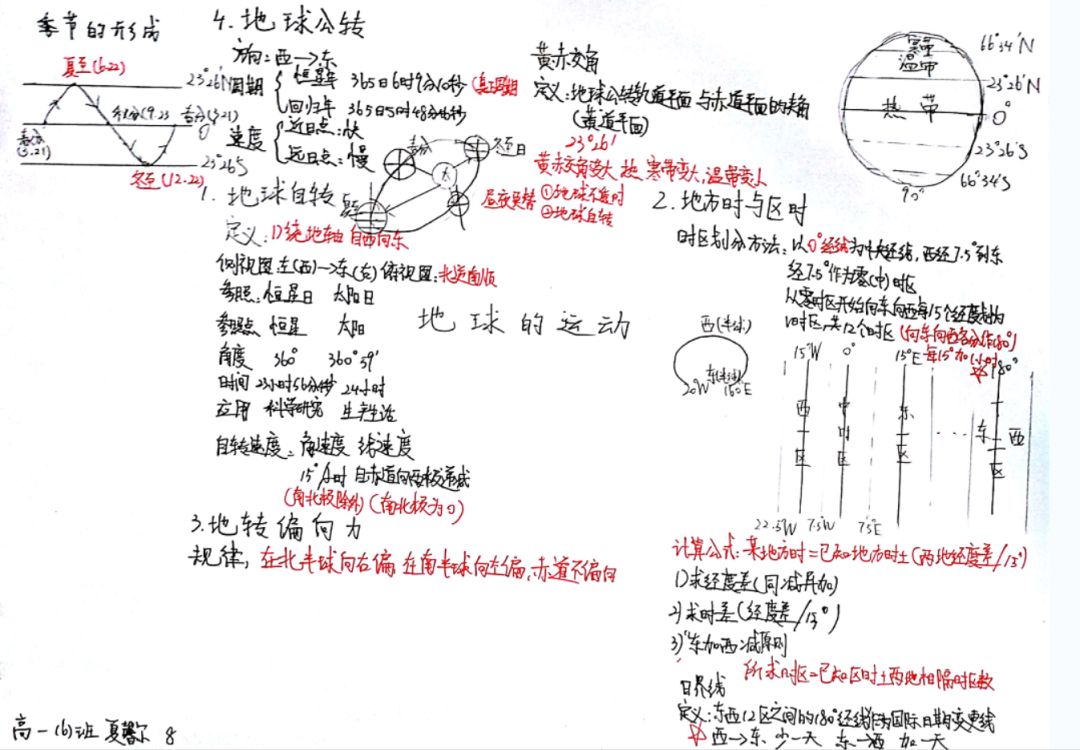 季节的形成
夏至(6.22)
23°26′N
秋分(9.23
春分(3.21)
0°
春分
(3.21)
23°26′S
冬至(12.22)
4.地球公转
方向:西→东
周期
恒星年 365日6时9分10秒(真正周期
回归年 365日5时48分46秒
速度
近日点:快
远日点:慢
春分
冬至日
太
黄赤交角
定义:地球公转轨道平面与赤道平面的夹角
(黄道平面)
23°26′
黄赤交角变大 热、寒带变大,温带变小
昼夜更替 ①地球不透明
②地球自转
寒带
温带
热带
66°34′N
23°26′N
0°
23°26′S
66°34′S
90°
1.地球自转
定义:1)绕地轴自西向东
侧视图:左(西)→东(右) 俯视图:北逆南顺
参照:恒星日 太阳日
参照点 恒星 太阳
角度 360° 360°59′
时间 23小时56分4秒 24小时
应用 科学研究 生产生活
自转速度:角速度 线速度
15°/小时 自赤道向两极递减
(南北极除外)(南北极为0)
3.地转偏向力
规律,在北半球向右偏,在南半球向左偏,赤道不偏向
地球的运动
2.地方时与区时
时区划分方法:以0°经线为中央经线,西经7.5°到东
经7.5°作为零(中)时区
从零时区开始向东向西每15个经度划为
1时区,共12个时区(向东向西各分作180°)
每15°加1小时
西(半球)
东(半球)
20°W 160°E
15°W 0° 15°E 180°
西一区
中时区
东一区
东 西
22.5°W 7.5°W 7.5°E
计算公式:某地方时=已知地方时±(两地经度差/15°)
1)求经度差(同减异加)
2)求时差(经度差/15°)
3)"东加西减"原则
所求时区=已知区时±两地相隔时区数
日界线
定义:东西12区之间的180°经线作为国际日期变更线
☆西→东 少一天 东→西 加一天
高一(6)班 夏 8